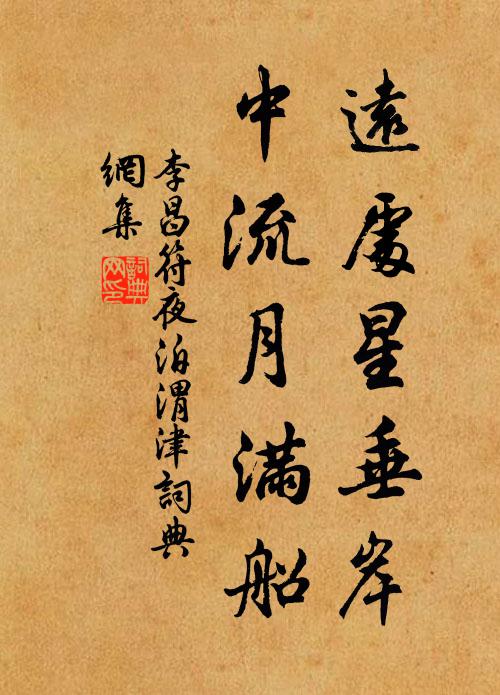 遠處星垂岸
中流月滿船
李昌符夜泊渭津詞典
網集
詞典
网印